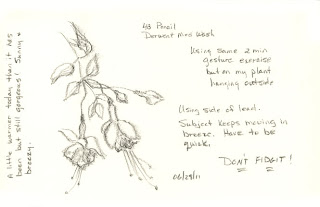 A little warmer today than it has
been but still gorgeous! Sunny &
breezy.
4B Pencil
Derwent Mini Wash
Using same 2 min
gesture exercise
but on my plant
hanging outside
Using side of lead.
Subject keeps moving in
breeze. Have to be
quick.
DON'T FIDGIT!
06/25/11